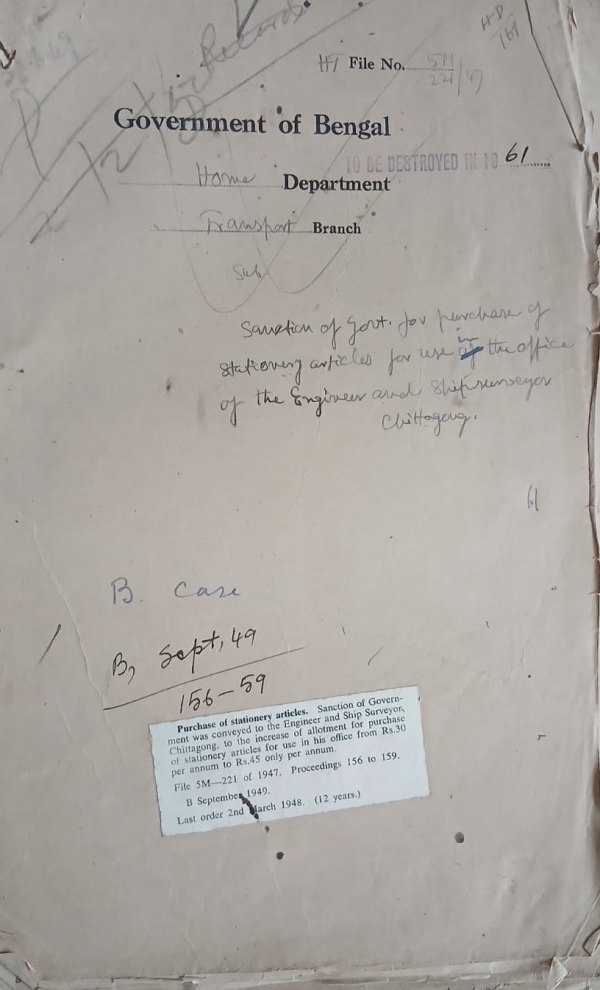 Records
HD
169
HT File No. 5M
221/47
Government of Bengal
TO BE DESTROYED IN 19 61
Home Department
Transport Branch
Sub
Sanction of Govt. for purchase of
stationery articles for use in the office
of the Engineer and Shipsurveyor
Chittagong.
61
B. Case
B, Sept, 49
156-59
Purchase of stationery articles. Sanction of Govern-
ment was conveyed to the Engineer and Ship Surveyor,
Chittagong, to the increase of allotment for purchase
of stationery articles for use in his office from Rs.30
per annum to Rs.45 only per annum.
File 5M—221 of 1947. Proceedings 156 to 159.
B September 1949.
Last order 2nd March 1948. (12 years.)